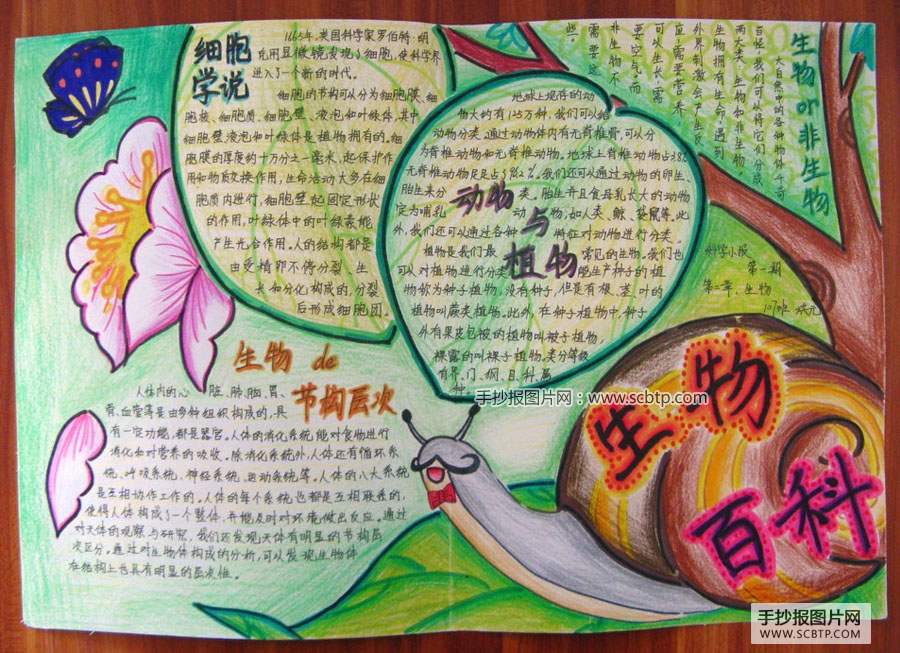 细胞
学说
1665年,英国科学家罗伯特·胡
克用显微镜发现了细胞,使科学界
进入了一个新的时代。
细胞的节构可以分为细胞膜、细
胞核、细胞质、细胞壁、液泡和叶绿体,其中
细胞壁液泡和叶绿体是植物拥有的。细
胞膜的厚度约十万分之一毫米,起保护作
用和物质交换作用,生命活动大多在细
胞质内进行,细胞壁起固定形状
的作用,叶绿体中的叶绿素能
产生光合作用。人的结构都是
由受精卵不停分裂、生
长和分化构成的,分裂
后形成细胞团。
动物
与
植物
地球上现存的动
物大约有125万种,我们可以给
动物分类。通过动物体内有无脊椎骨,可以分
为脊椎动物和无脊椎动物。地球上脊椎动物占3.8%
无脊椎动物足足占96.2%。我们还可以通过动物的卵生、
胎生来分类,胎生并且食母乳长大的动物
定为哺乳动物,如人类、鲸、袋鼠等。此
外,我们还可以通过各种特征对动物进行分类。
植物是我们最常见的生物。我们也
可以对植物进行分类,能生产种子的植
物称为种子植物。没有种子,但是有根、茎、叶的
植物叫蕨类植物。此外,在种子植物中,种子
外有果皮包被的植物叫被子植物,
裸露的叫裸子植物。类分等级
有界、门、纲、目、科、属、
种。
生物or非生物
大自然中的各种物体千奇
百怪,我们可以将它们分成
两大类:生物和非生物。
生物拥有生命,遇到
外界刺激会产生反
应,需要营养,
可以生长,需
要空气,而
非生物不
需要这
些。
科学小报
第一期
第二章、生物
生物 de
节构层次
人体内的心脏、肺、脑、胃、
骨、血管等是由多种组织构成的,具
有一定功能,都是器官。人体的消化系统能对食物进行
消化和对营养的吸收。除消化系统外,人体还有循环系
统、呼吸系统、神经系统、运动系统等。人体的八大系统
是互相协作工作的。人体的每个系统也都是互相联系的,
使得人体构成了一个整体,并能及时对环境做出反应。通过
对天体的观察与研究,我们还发现天体有明显的节构层
次区分。通过对生物体构成的分析,可以发现生物体
在结构上也具有明显的层次性。
生物
百科
手抄报图片网:www.scbtp.com
手抄报图片网
WWW.SCBTP.COM